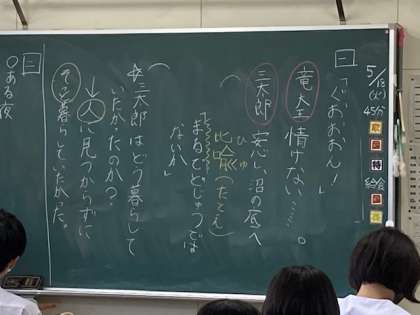 5/13
(火)
45分
国
特
給食
一
「ぐおおおん!」
竜大王 情けない……。
三太郎 安心 沼の底へ
比喩(たとえ)
ひゆ
まるでどじょうでは
ないか
☆三太郎はどう暮らして
いたかったのか?
人に見つからずに
そっと暮らしていたかった。
○ある夜